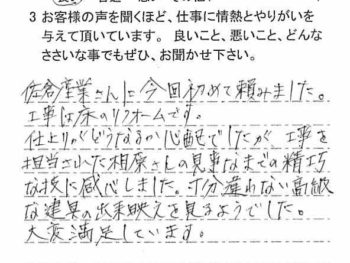 3 お客様の声を聞くほど、仕事に情熱とやりがいを
与えて頂いています。 良いこと、悪いこと、どんな
ささいな事でもぜひ、お聞かせ下さい。
佐倉産業さんに今回初めて頼みました。
工事は床のリフォームです。
仕上りがどうなるか心配でしたが、工事を
担当された相原さんの見事なまでの精巧
な技に感心しました。寸分違わない高級
な建具の出来映えを見るようでした。
大変満足しています。